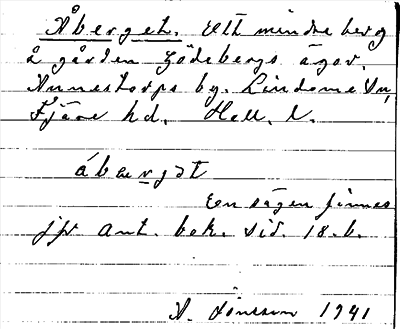 Åberget. Ett mindre berg
å gården Gödebergs ägor.
Annestorps by. Lindome Sn,
Fjäre hd. Hall. l.
åbærjət
En sägen finnes
jfr ant. bok. sid. 18.b.
A. Jönsson 1941